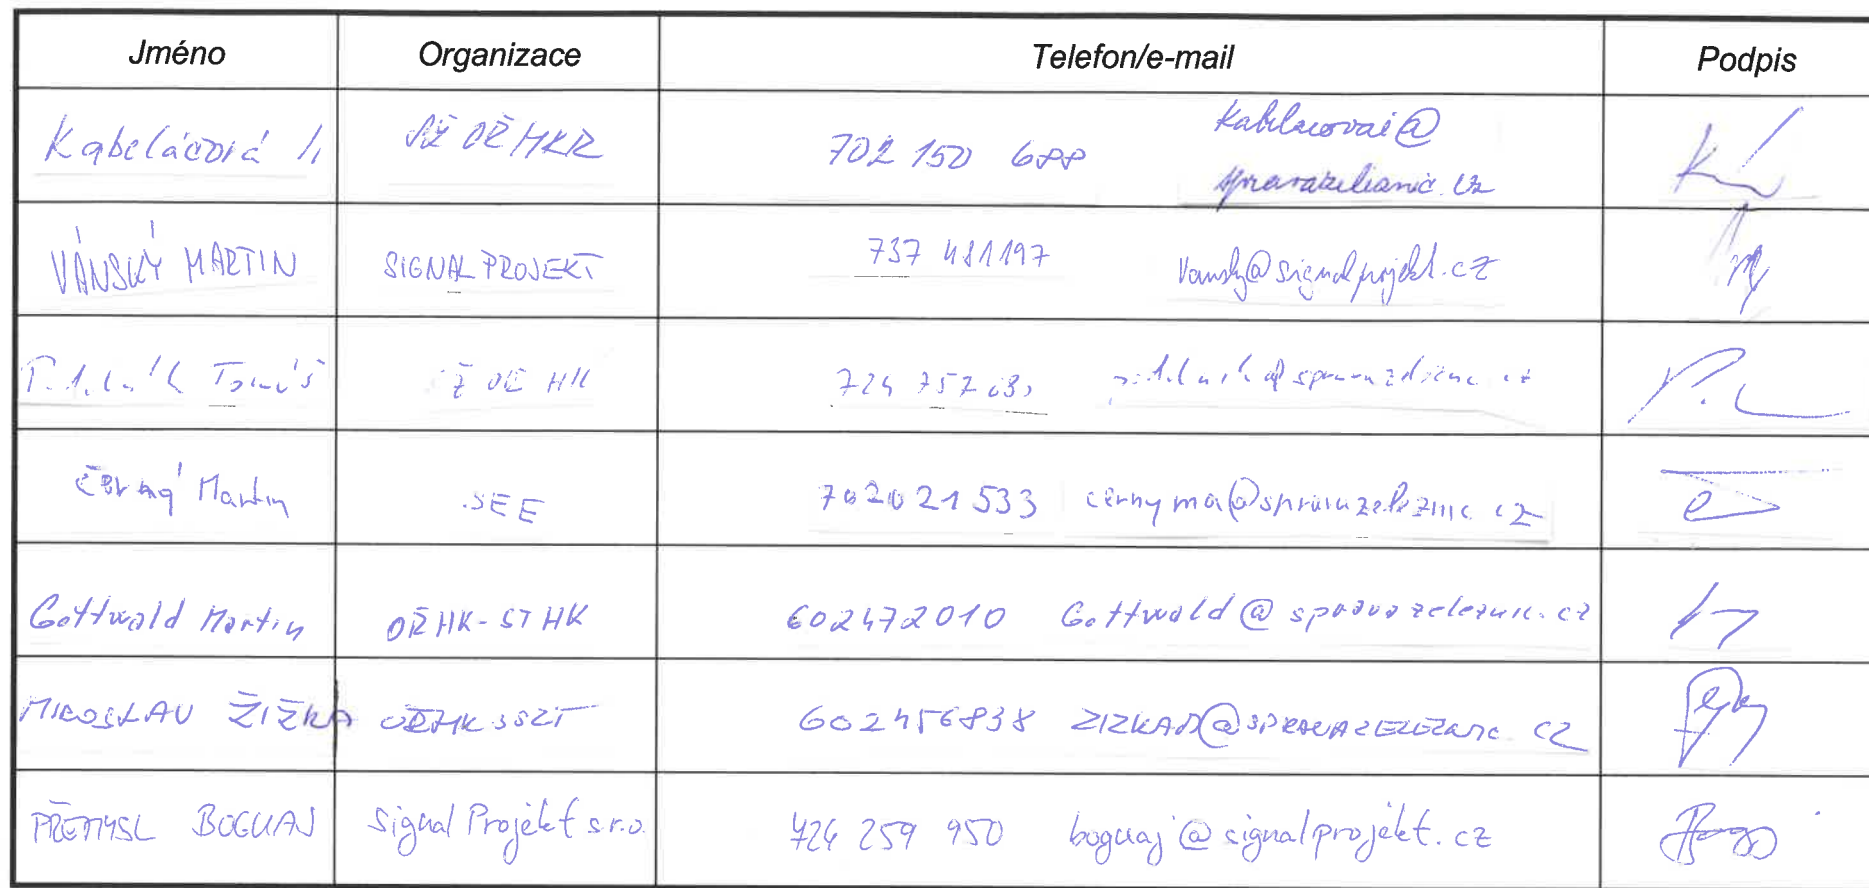 Jméno Organizace Telefon/e-mail Podpis
Kabeláčová SŽ OŘ HKR 702 150 688 Kabelacovai@
spravazeleznic.cz
VÁNSKÝ MARTIN SIGNAL PROJEKT 737 481197 Vansky@signalprojekt.cz
Tomáš OŘ HK 724 757
Černý Martin SEE 702021533 cernyma@spravazeleznic.cz
Gottwald Martin OŘ HK-ST HK 602472010 Gottwald@spravazeleznic.cz
MIROSLAV ŽIŽKA OŘHK SSZT 602456838 @SPRAVAZELEZNIC.CZ
PŘEMYSL BOGUAJ Signal Projekt s.r.o. 724 259 950 boguaj@signalprojekt.cz